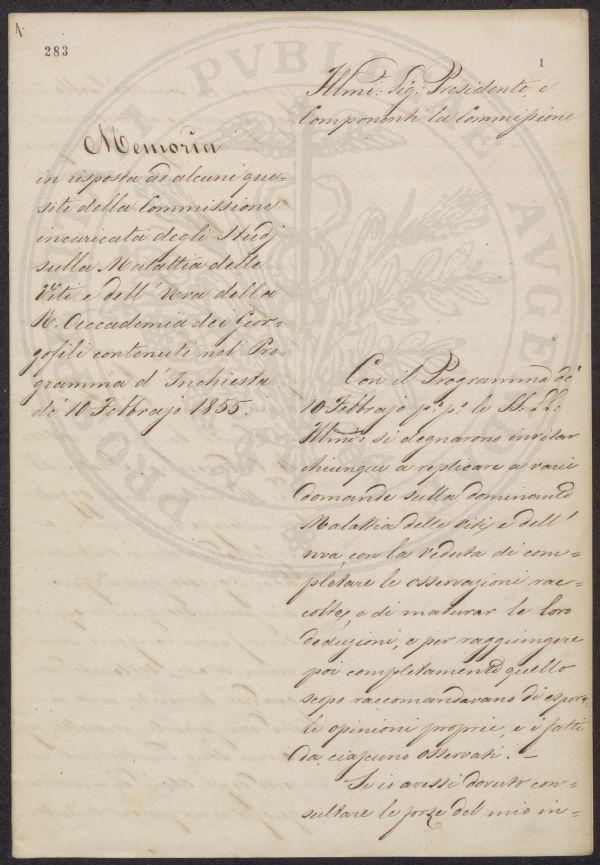 1.
283
1
Memoria
in risposta ad alcuni que-
siti della Commissione
incaricata degli Studj
sulla Malattia delle
Viti e dell' Uva della
R. Accademia dei Geor-
gofili contenuti nel Pro-
gramma d' Inchiesta
de' 10 Febbrajo 1855.
Illmi: Sig: Presidente, e
Componenti la Commissione
Con il Programma de'
10 Febbrajo p.o p.o le SS. LL:
Illme: si degnarono invitar
chiunque a replicare a varie
domande sulla dominante
Malattia delle Viti, e dell'
uva con la veduta di com-
pletare le osservazioni rac-
colte, e di maturar le loro
deduzioni, e per raggiungere
poi completamente quello
scopo raccomandavano di espor
le opinioni proprie, e i fatti
da ciascuno osservati. —
Se io avessi dovuto con-
sultare le forze del mio in-
PROSPERITATI PVBLICAE AVGENDAE